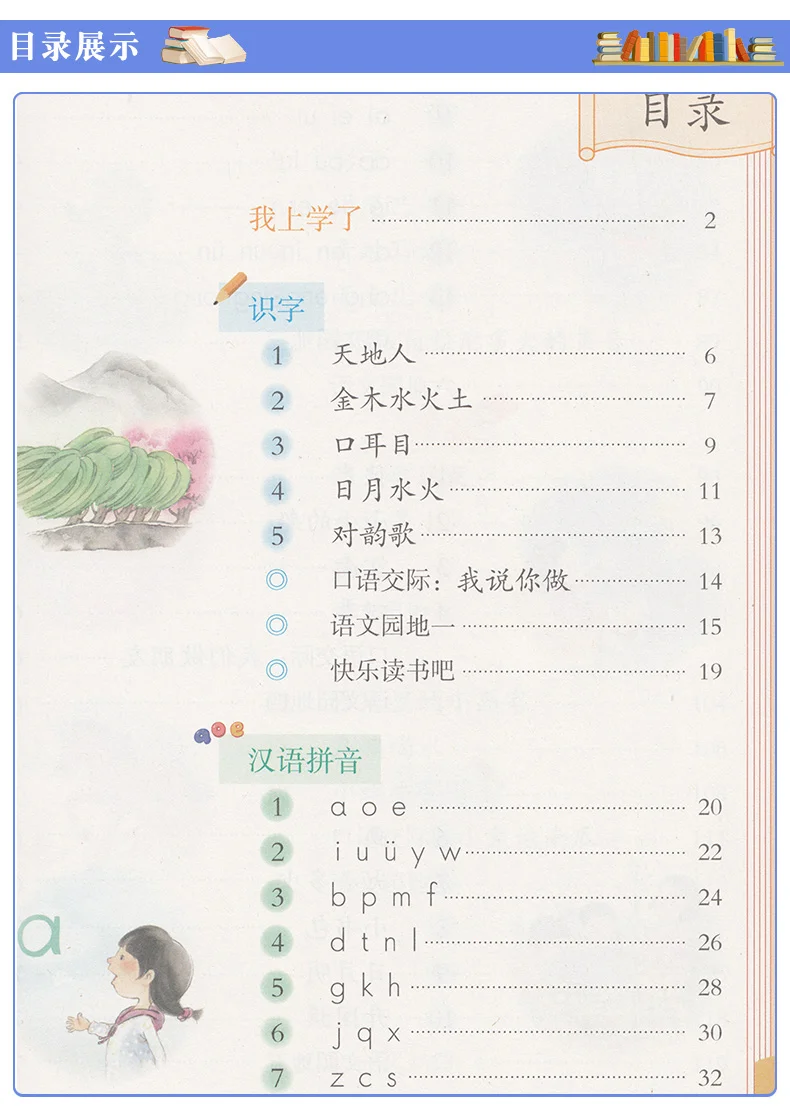 目录展示
目录
我上学了 2
识字
1 天地人 6
2 金木水火土 7
3 口耳目 9
4 日月水火 11
5 对韵歌 13
◎ 口语交际：我说你做 14
◎ 语文园地一 15
◎ 快乐读书吧 19
a o e
汉语拼音
1 ɑ o e 20
2 i u ü y w 22
3 b p m f 24
4 d t n l 26
5 g k h 28
6 j q x 30
7 z c s 32
ɑ